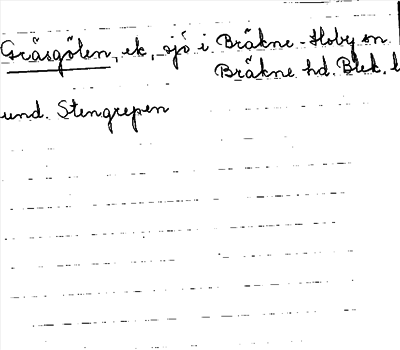 Gräsgölen, ek., sjö i Bräkne-Hoby sn
Bräkne hd. Blek. l
und. Stengrepen